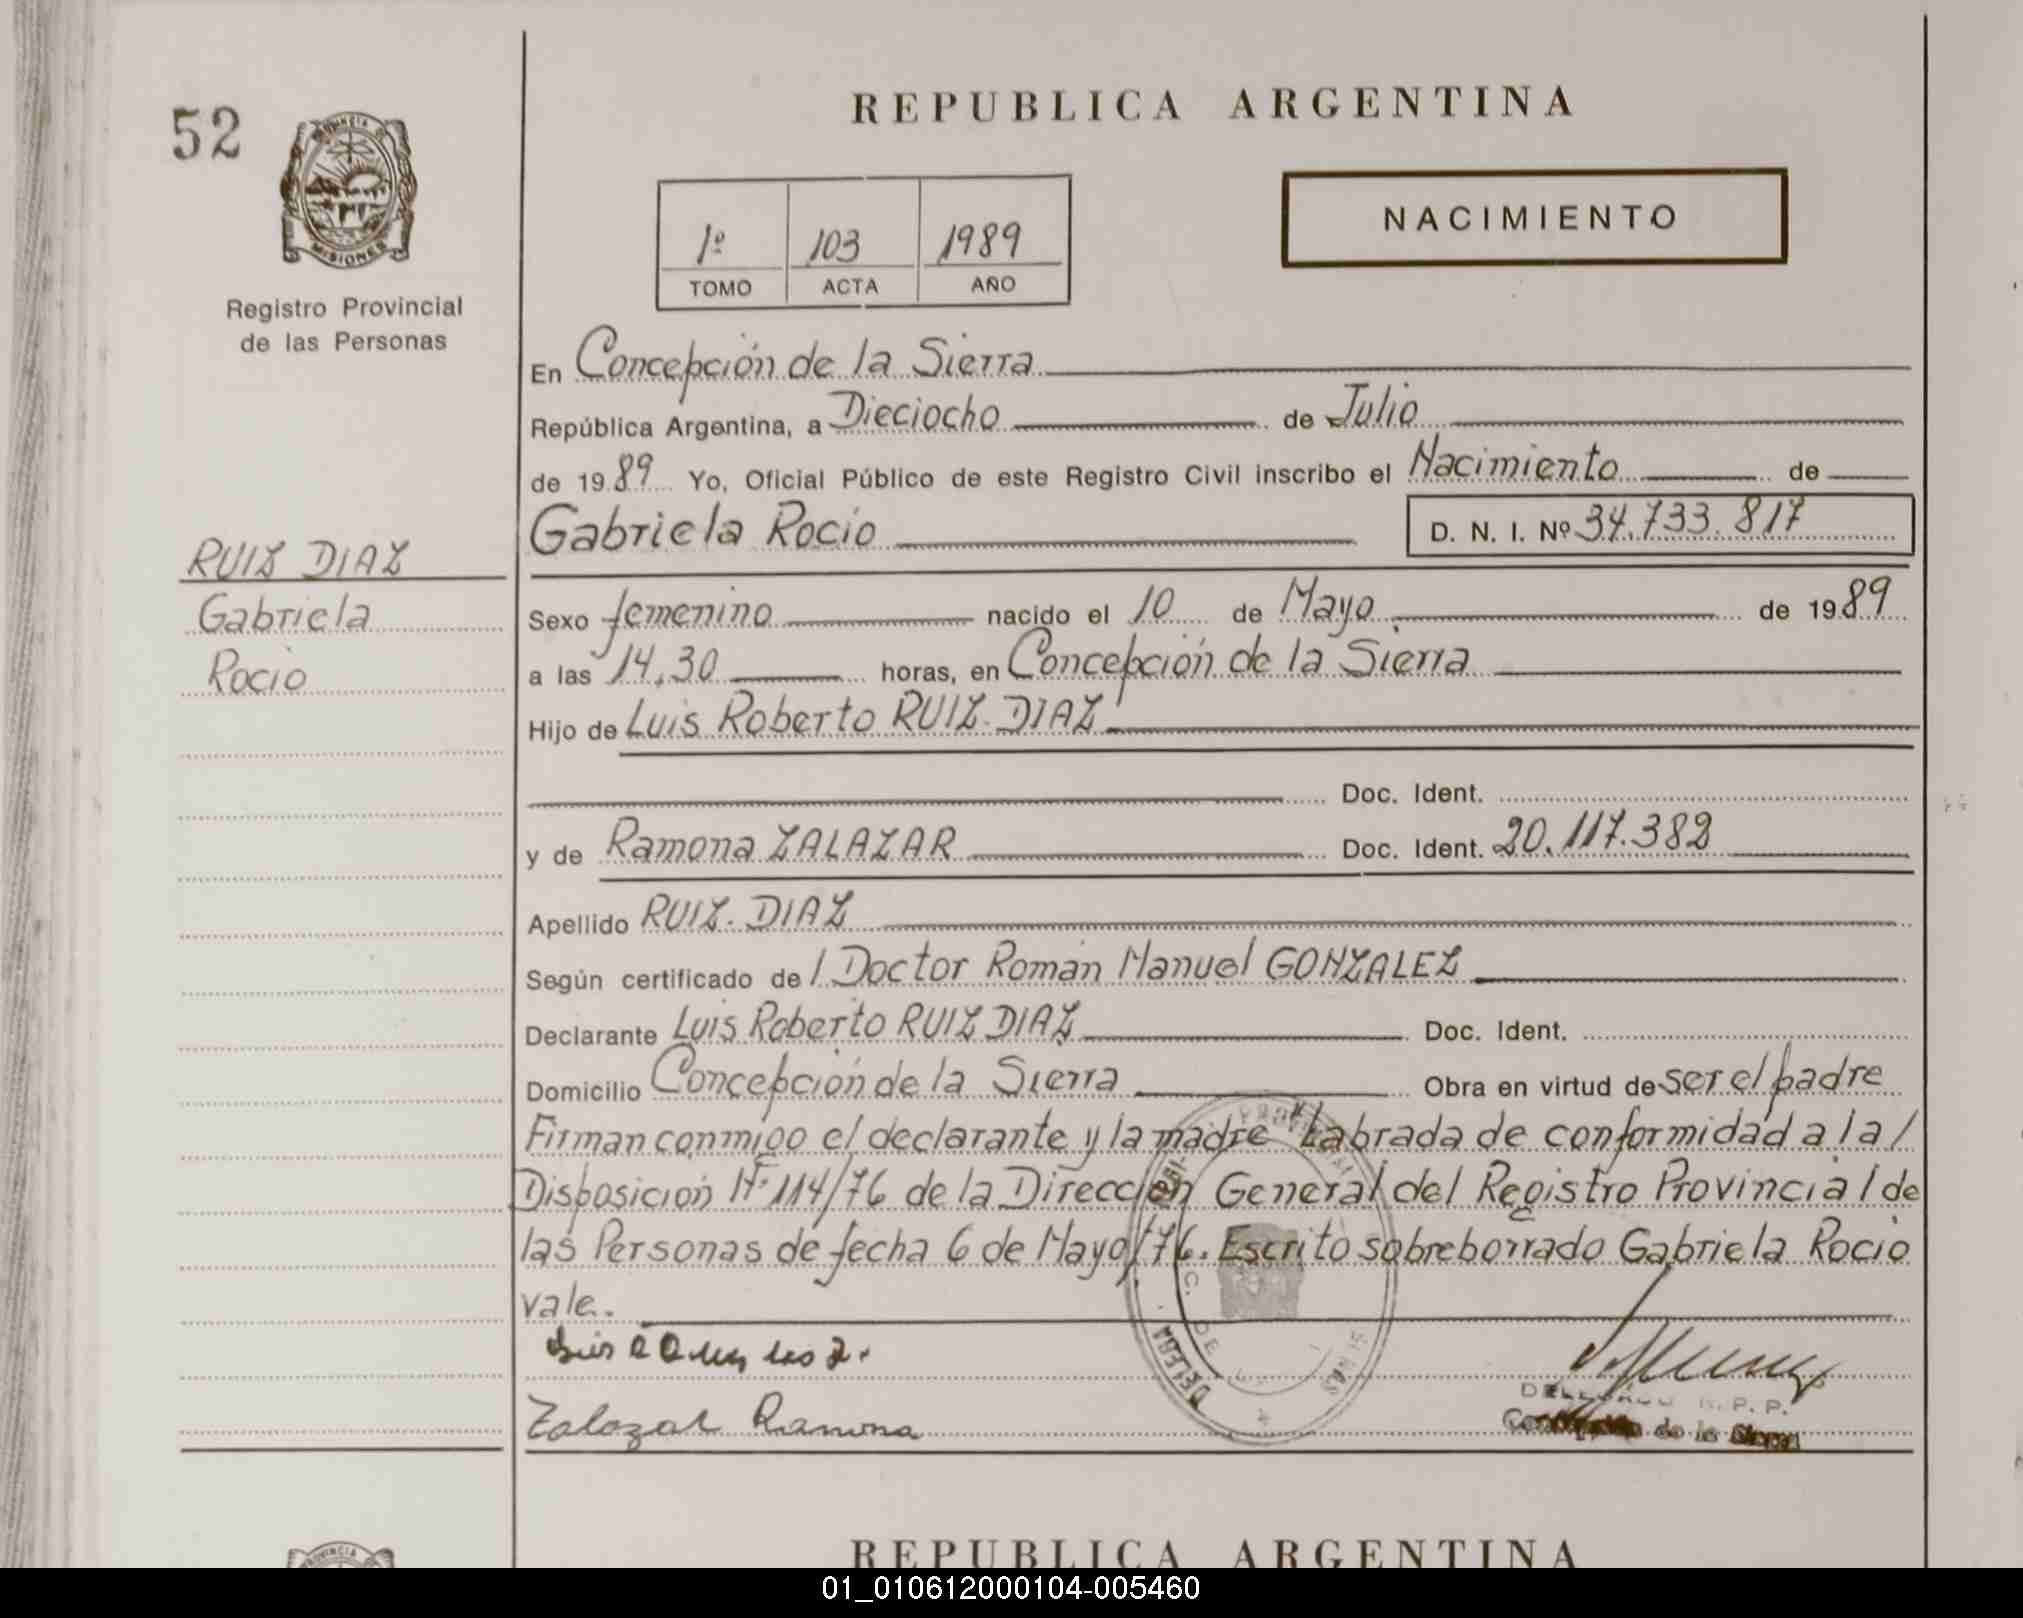 52
PROVINCIA DE
MISIONES
Registro Provincial
de las Personas
RUIZ DIAZ
Gabriela
Rocio
REPUBLICA ARGENTINA
1º 103 1989
TOMO ACTA AÑO
NACIMIENTO
En Concepción de la Sierra
República Argentina, a Dieciocho de Julio
de 1989 Yo, Oficial Público de este Registro Civil inscribo el Nacimiento de
Gabriela Rocio D. N. I. Nº 34.733.817
Sexo femenino nacido el 10 de Mayo de 1989
a las 14,30 horas, en Concepción de la Sierra
Hijo de Luis Roberto RUIZ DIAZ
Doc. Ident.
y de Ramona ZALAZAR Doc. Ident. 20.117.382
Apellido RUIZ DIAZ
Según certificado de l Doctor Román Manuel GONZALEZ
Declarante Luis Roberto RUIZ DIAZ Doc. Ident.
Domicilio Concepción de la Sierra Obra en virtud de ser el padre
Firman conmigo el declarante y la madre Labrada de conformidad a la/
Disposición Nº 114/76 de la Dirección General del Registro Provincial de
las Personas de fecha 6 de Mayo/76. Escrito sobreborrado Gabriela Rocio
vale.
Zalazar Ramona
DELEGADO R.P.P.
Concepción de la Sierra
PROVINCIA DE
REPUBLICA ARGENTINA
01_010612000104-005460